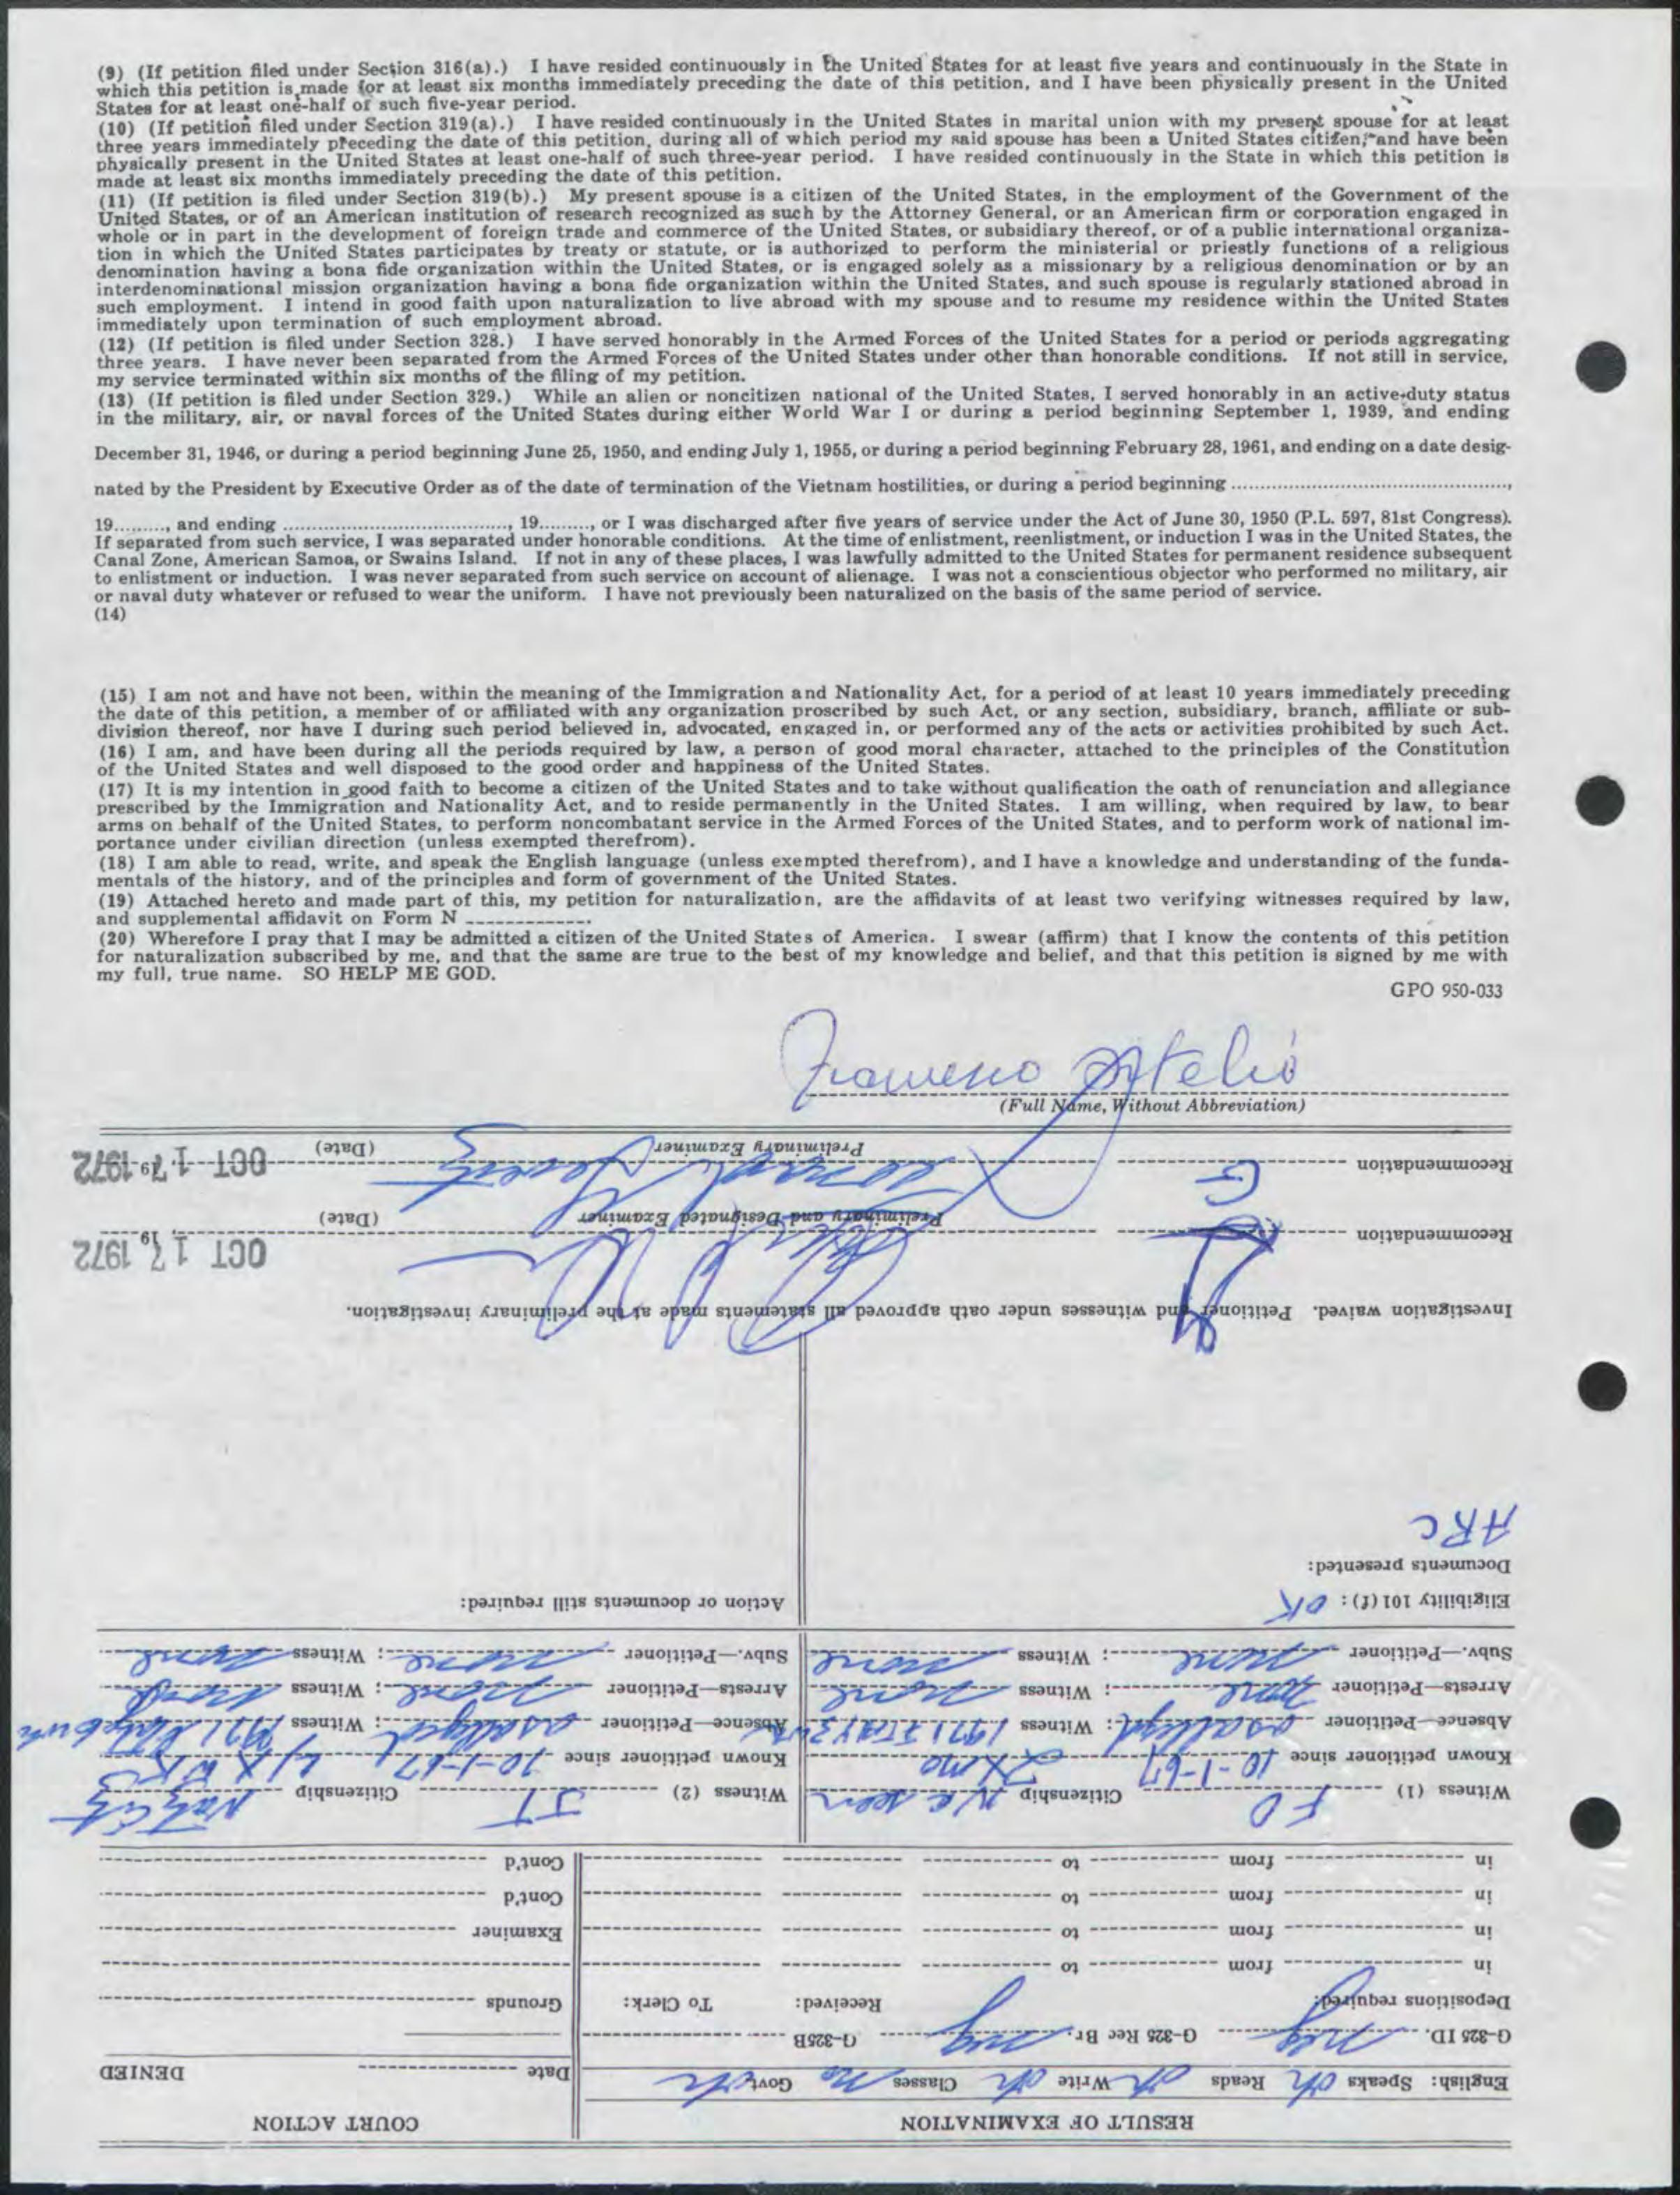 (9) (If petition filed under Section 316(a).) I have resided continuously in the United States for at least five years and continuously in the State in
which this petition is made for at least six months immediately preceding the date of this petition, and I have been physically present in the United
States for at least one-half of such five-year period.
(10) (If petition filed under Section 319(a).) I have resided continuously in the United States in marital union with my present spouse for at least
three years immediately preceding the date of this petition, during all of which period my said spouse has been a United States citizen, and have been
physically present in the United States at least one-half of such three-year period. I have resided continuously in the State in which this petition is
made at least six months immediately preceding the date of this petition.
(11) (If petition is filed under Section 319(b).) My present spouse is a citizen of the United States, in the employment of the Government of the
United States, or of an American institution of research recognized as such by the Attorney General, or an American firm or corporation engaged in
whole or in part in the development of foreign trade and commerce of the United States, or subsidiary thereof, or of a public international organiza-
tion in which the United States participates by treaty or statute, or is authorized to perform the ministerial or priestly functions of a religious
denomination having a bona fide organization within the United States, or is engaged solely as a missionary by a religious denomination or by an
interdenominational mission organization having a bona fide organization within the United States, and such spouse is regularly stationed abroad in
such employment. I intend in good faith upon naturalization to live abroad with my spouse and to resume my residence within the United States
immediately upon termination of such employment abroad.
(12) (If petition is filed under Section 328.) I have served honorably in the Armed Forces of the United States for a period or periods aggregating
three years. I have never been separated from the Armed Forces of the United States under other than honorable conditions. If not still in service,
my service terminated within six months of the filing of my petition.
(13) (If petition is filed under Section 329.) While an alien or noncitizen national of the United States, I served honorably in an active-duty status
in the military, air, or naval forces of the United States during either World War I or during a period beginning September 1, 1939, and ending
December 31, 1946, or during a period beginning June 25, 1950, and ending July 1, 1955, or during a period beginning February 28, 1961, and ending on a date desig-
nated by the President by Executive Order as of the date of termination of the Vietnam hostilities, or during a period beginning ,
19 , and ending , 19 , or I was discharged after five years of service under the Act of June 30, 1950 (P.L. 597, 81st Congress).
If separated from such service, I was separated under honorable conditions. At the time of enlistment, reenlistment, or induction I was in the United States, the
Canal Zone, American Samoa, or Swains Island. If not in any of these places, I was lawfully admitted to the United States for permanent residence subsequent
to enlistment or induction. I was never separated from such service on account of alienage. I was not a conscientious objector who performed no military, air
or naval duty whatever or refused to wear the uniform. I have not previously been naturalized on the basis of the same period of service.
(14)
(15) I am not and have not been, within the meaning of the Immigration and Nationality Act, for a period of at least 10 years immediately preceding
the date of this petition, a member of or affiliated with any organization proscribed by such Act, or any section, subsidiary, branch, affiliate or sub-
division thereof, nor have I during such period believed in, advocated, engaged in, or performed any of the acts or activities prohibited by such Act.
(16) I am, and have been during all the periods required by law, a person of good moral character, attached to the principles of the Constitution
of the United States and well disposed to the good order and happiness of the United States.
(17) It is my intention in good faith to become a citizen of the United States and to take without qualification the oath of renunciation and allegiance
prescribed by the Immigration and Nationality Act, and to reside permanently in the United States. I am willing, when required by law, to bear
arms on behalf of the United States, to perform noncombatant service in the Armed Forces of the United States, and to perform work of national im-
portance under civilian direction (unless exempted therefrom).
(18) I am able to read, write, and speak the English language (unless exempted therefrom), and I have a knowledge and understanding of the funda-
mentals of the history, and of the principles and form of government of the United States.
(19) Attached hereto and made part of this, my petition for naturalization, are the affidavits of at least two verifying witnesses required by law,
and supplemental affidavit on Form N .
(20) Wherefore I pray that I may be admitted a citizen of the United States of America. I swear (affirm) that I know the contents of this petition
for naturalization subscribed by me, and that the same are true to the best of my knowledge and belief, and that this petition is signed by me with
my full, true name. SO HELP ME GOD.
GPO 950-033
(Full Name, Without Abbreviation)
RESULT OF EXAMINATION
COURT ACTION
English: Speaks ok Reads ok Write ok Classes no Govt ok
Date
DENIED
G-325 ID. G-325 Rec Br. G-325B
Depositions required: Received: To Clerk:
Grounds
in from to
in from to
Examiner
in from to
Cont'd
in from to
Cont'd
Witness (1) FO Citizenship seen
Witness (2) JT Citizenship
Known petitioner since 10-1-67
Known petitioner since 10-1-67
Absence—Petitioner as alleged; Witness 1971
Absence—Petitioner as alleged; Witness 1971
Arrests—Petitioner none; Witness none
Arrests—Petitioner none; Witness none
Subv.—Petitioner none; Witness none
Subv.—Petitioner none; Witness none
Eligibility 101 (f): OK
Action or documents still required:
Documents presented:
ARC
Investigation waived. Petitioner and witnesses under oath approved all statements made at the preliminary investigation.
Recommendation OCT 17 1972 19
Preliminary and Designated Examiner (Date)
Recommendation G OCT 17 1972 19
Preliminary Examiner (Date)